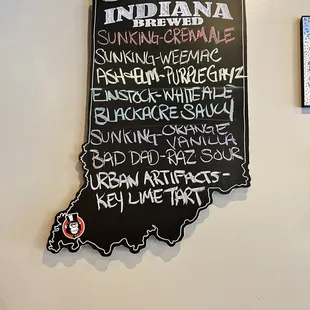 INDIANA
BREWED
SUNKING-CREAM ALE
SUNKING-WEEMAC
ASH+ELM-PURPLE GAYZ
EINSTOCK-WHITE ALE
BLACKACRE SAUCY
SUNKING-ORANGE
VANILLA
BAD DAD-RAZ SOUR
URBAN ARTIFACTS-
KEY LIME TART